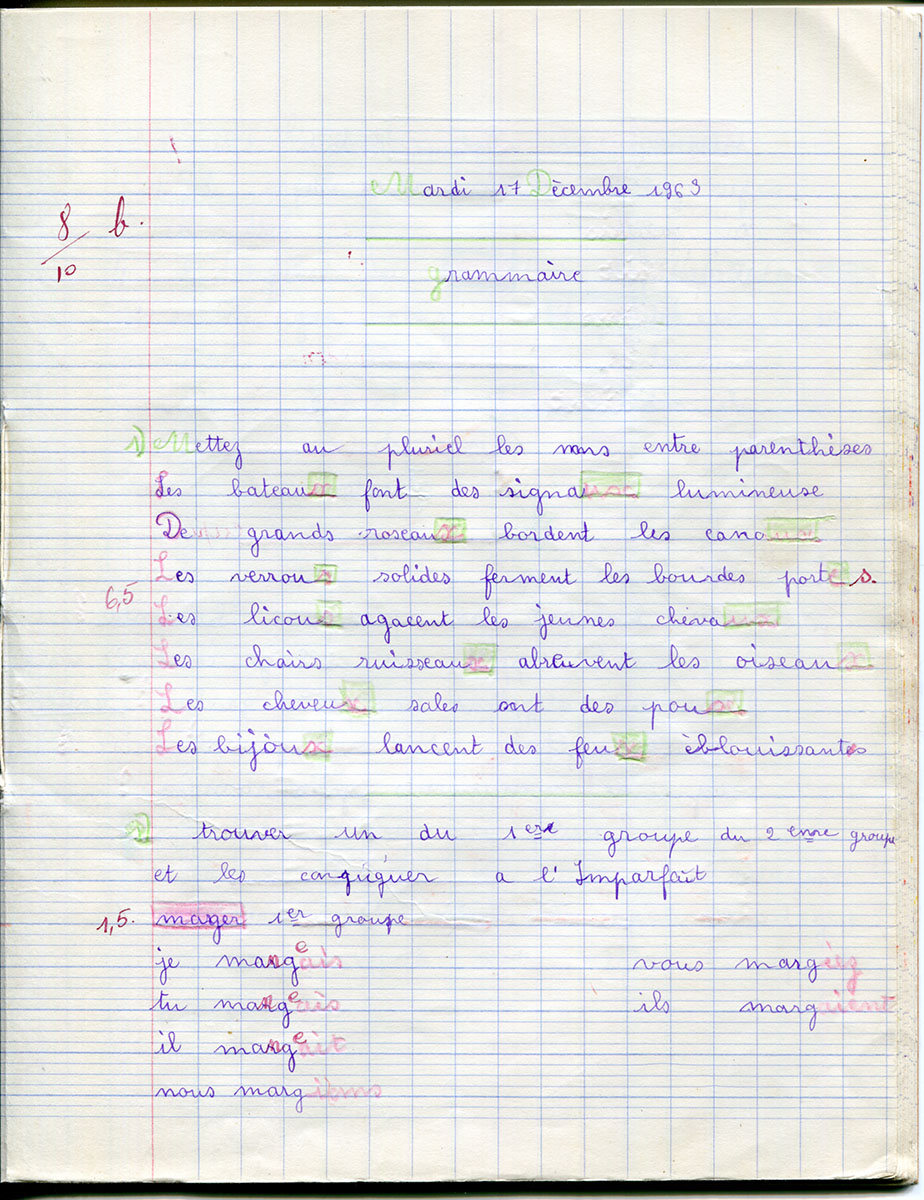 Mardi 17 Décembre 1963
8/10 b.
grammaire
1) Mettez au pluriel les noms entre parenthèses
Les bateaux font des signaux lumineuse
De grands roseaux bordent les canaux
Les verrous solides ferment les bourdes portes.
6,5
Les licous agacent les jeunes chevaux
Les chairs ruisseaux abreuvent les oiseaux
Les cheveux sales ont des poux
Les bijoux lancent des feux èblouissants
2) trouver un du 1ere groupe du 2 eme groupe
et les conjuguer a l'Imparfait
1,5. mager 1er groupe
je margeais vous margiez
tu margeais ils margaient
il margeait
nous margions